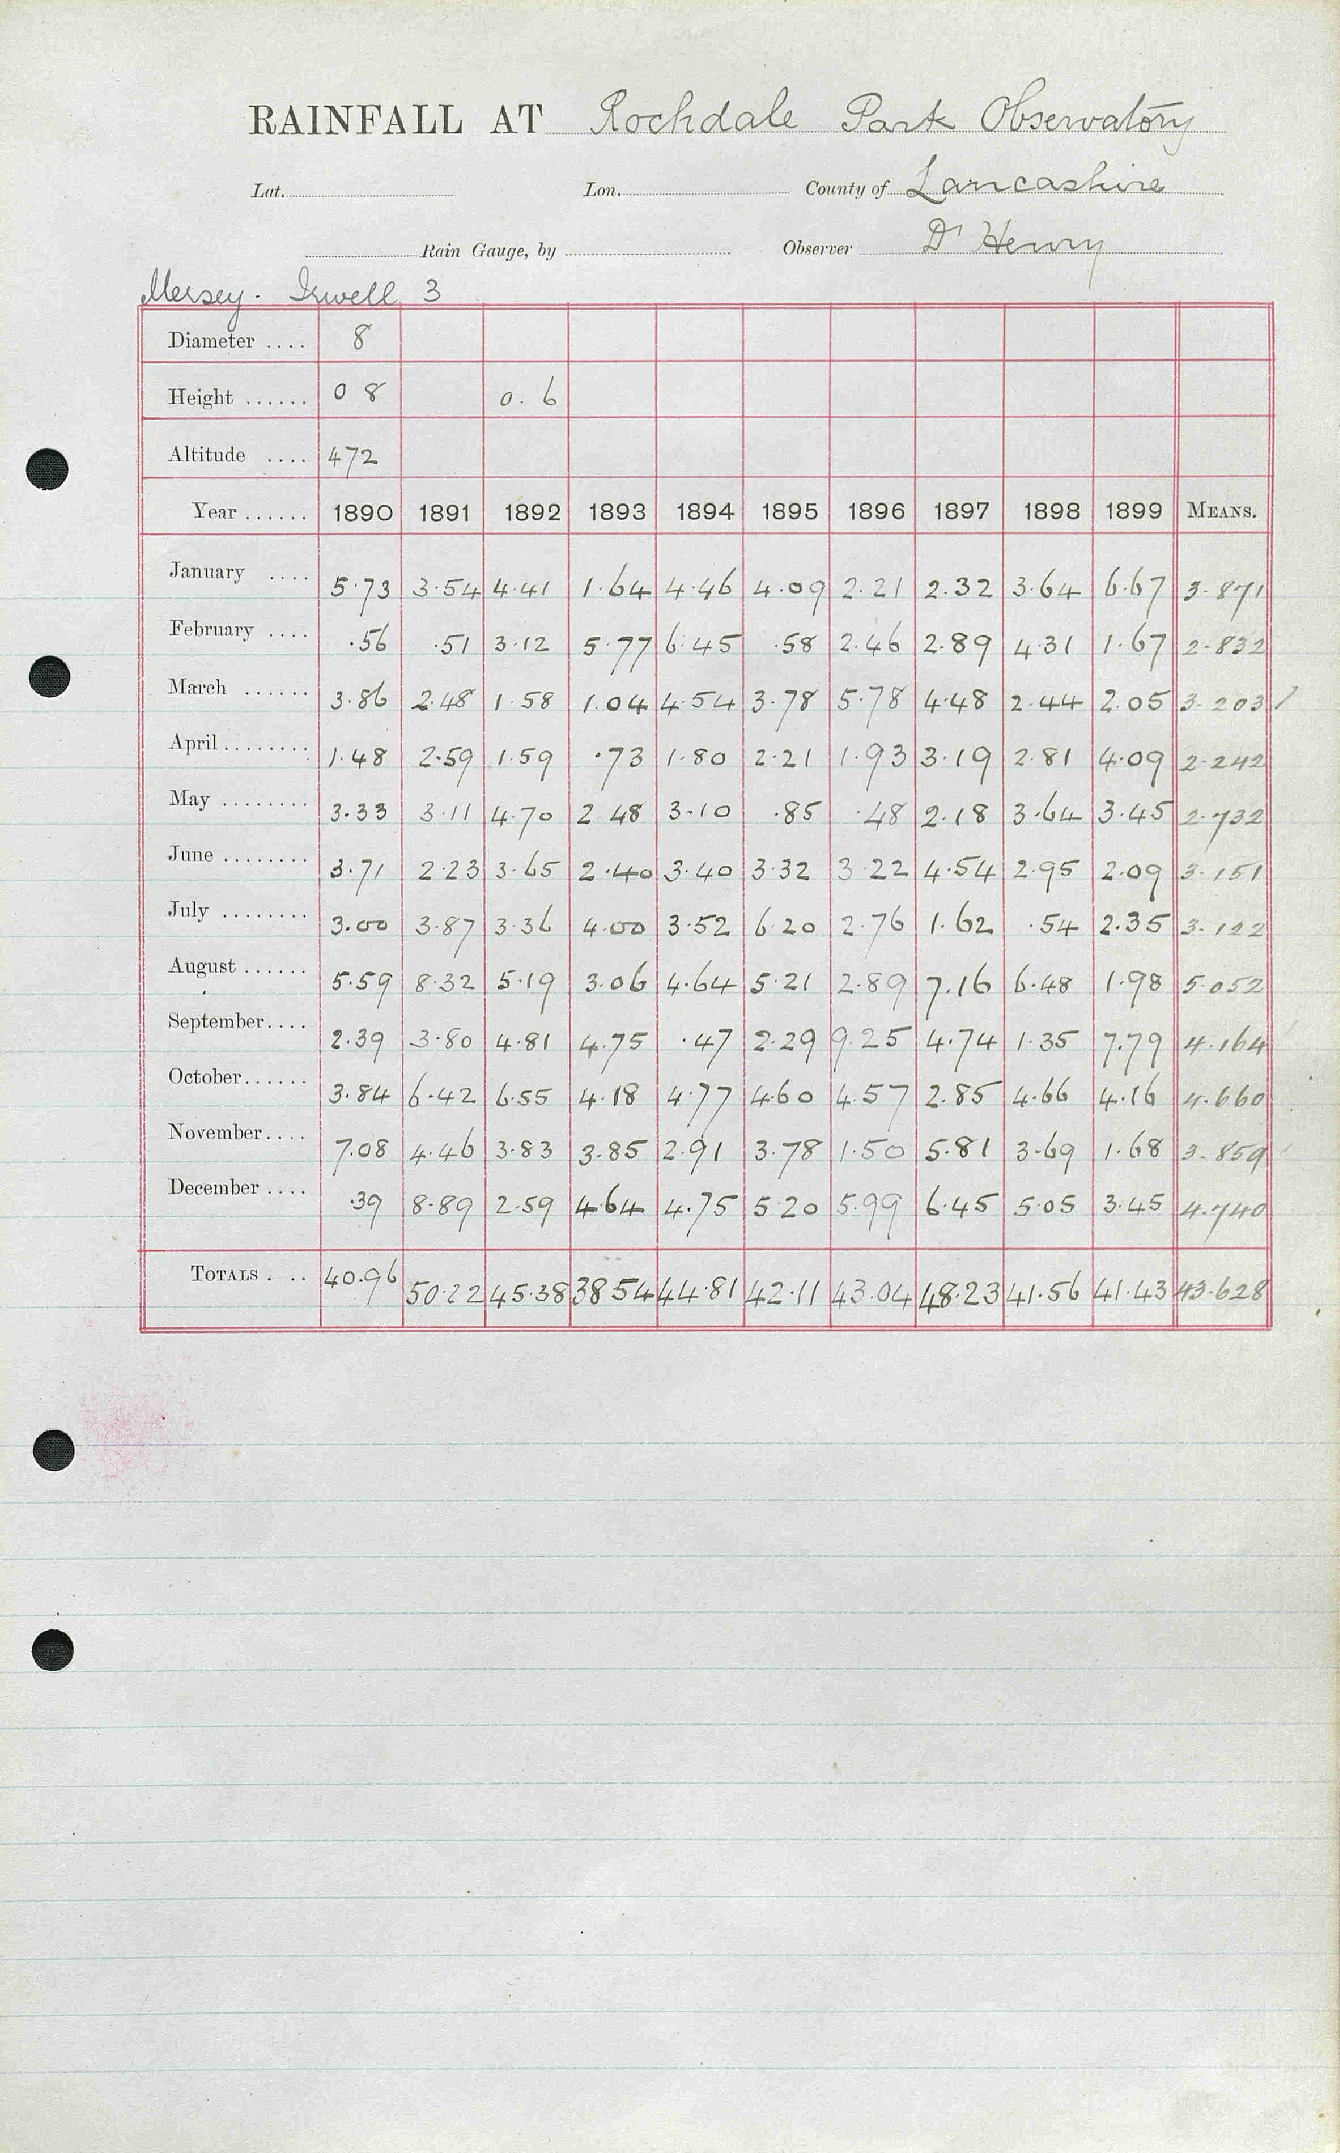 RAINFALL AT Rochdale Park Observatory
Lat. Lon. County of Lancashire
Rain Gauge, by Observer Dr Henry
Mersey. Irwell 3
Diameter .... 8
Height ...... 0 8 0.6
Altitude .... 472
Year ...... 1890 1891 1892 1893 1894 1895 1896 1897 1898 1899 MEANS.
January .... 5.73 3.54 4.41 1.64 4.46 4.09 2.21 2.32 3.64 6.67 3.871
February .... .56 .51 3.12 5.77 6.45 .58 2.46 2.89 4.31 1.67 2.832
March ...... 3.86 2.48 1.58 1.04 4.54 3.78 5.78 4.48 2.44 2.05 3.203 /
April ........ 1.48 2.59 1.59 .73 1.80 2.21 1.93 3.19 2.81 4.09 2.242
May ........ 3.33 3.11 4.70 2.48 3.10 .85 .48 2.18 3.64 3.45 2.732
June ........ 3.71 2.23 3.65 2.40 3.40 3.32 3.22 4.54 2.95 2.09 3.151
July ........ 3.00 3.87 3.36 4.00 3.52 6.20 2.76 1.62 .54 2.35 3.122
August ...... 5.59 8.32 5.19 3.06 4.64 5.21 2.89 7.16 6.48 1.98 5.052
September.... 2.39 3.80 4.81 4.75 .47 2.29 9.25 4.74 1.35 7.79 4.164
October...... 3.84 6.42 6.55 4.18 4.77 4.60 4.57 2.85 4.66 4.16 4.660
November.... 7.08 4.46 3.83 3.85 2.91 3.78 1.50 5.81 3.69 1.68 3.859
December .... .39 8.89 2.59 4.64 4.75 5.20 5.99 6.45 5.05 3.45 4.740
TOTALS . .. 40.96 50.22 45.38 38.54 44.81 42.11 43.04 48.23 41.56 41.43 43.628